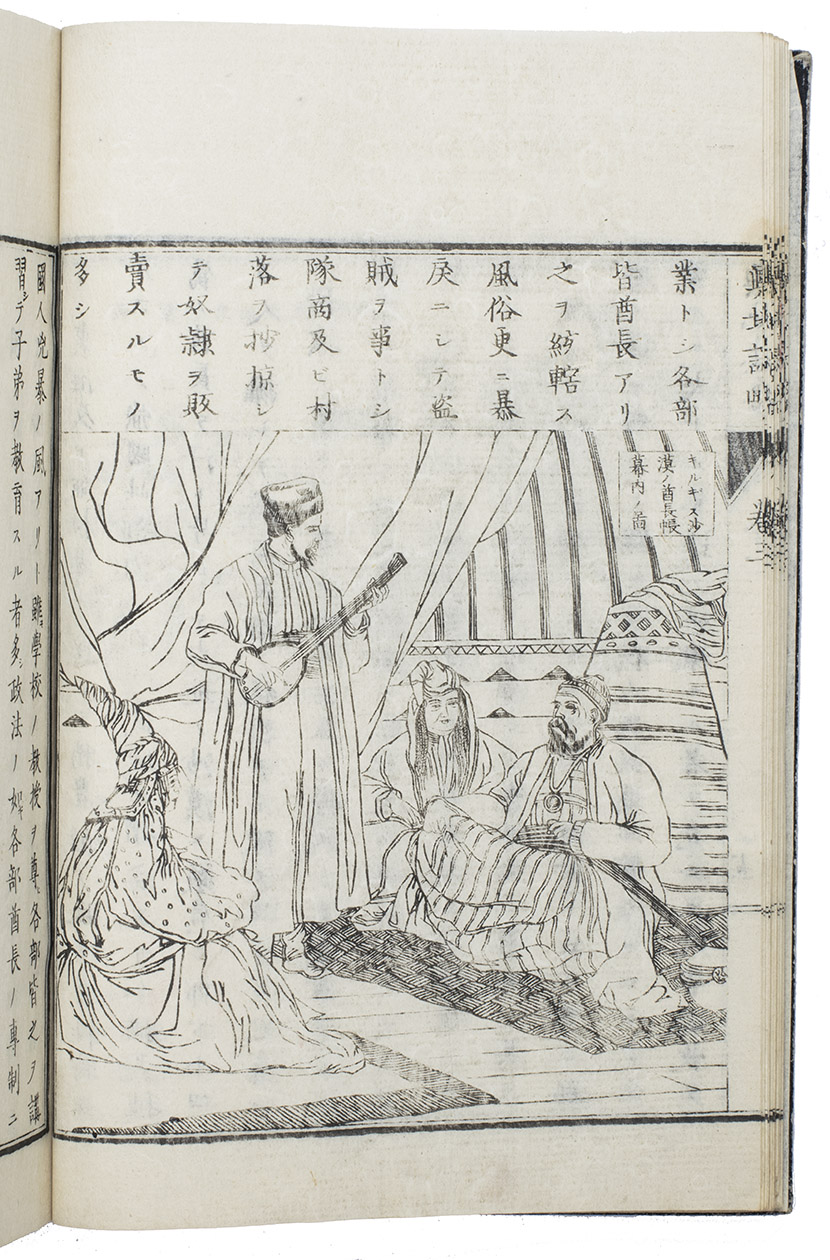 輿地誌略 卷二
業トシ各部
皆酋長アリ
之ヲ統轄ス
風俗更ニ暴
戾ニシテ盜
賊ヲ事トシ
隊商及ヒ村
落ヲ抄掠シ
テ奴隷ヲ販
賣スルモノ
多シ
キルギス沙
漠ノ酋長帳
幕内ノ圖
國人兇暴ノ風アリト雖モ學校ノ教授ヲ尊ヒ各部皆之ヲ講
習シテ子弟ヲ教育スル者多シ政法ノ如キ各部酋長ノ專制ニ